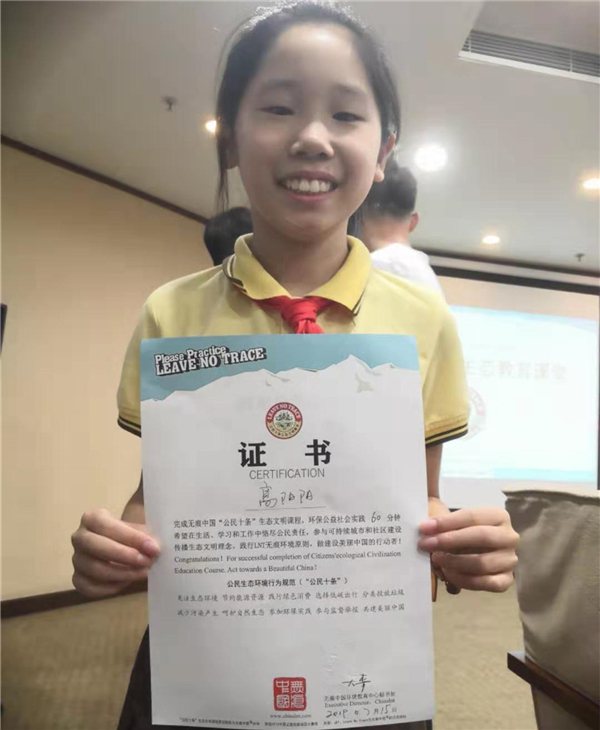 Please Practice
LEAVE NO TRACE
生态教育课堂
LEAVE NO TRACE
证书
CERTIFICATION
高阳阳
完成无痕中国“公民十条”生态文明课程，环保公益社会实践 60 分钟
希望在生活、学习和工作中恪尽公民责任，参与可持续城市和社区建设
传播生态文明理念，践行LNT无痕环境原则，做建设美丽中国的行动者！
Congratulations！For successful completion of Citizens'ecological Civilization
Education Course. Act towards a Beautiful China！
公民生态环境行为规范（“公民十条”）
关注生态环境 节约能源资源 践行绿色消费 选择低碳出行 分类投放垃圾
减少污染产生 呵护自然生态 参加环保实践 参与监督举报 共建美丽中国
中国无痕
www.chinalnt.com
无痕中国环境教育中心秘书长
Executive Director. Chinalnt
2019 年 7 月 15 日